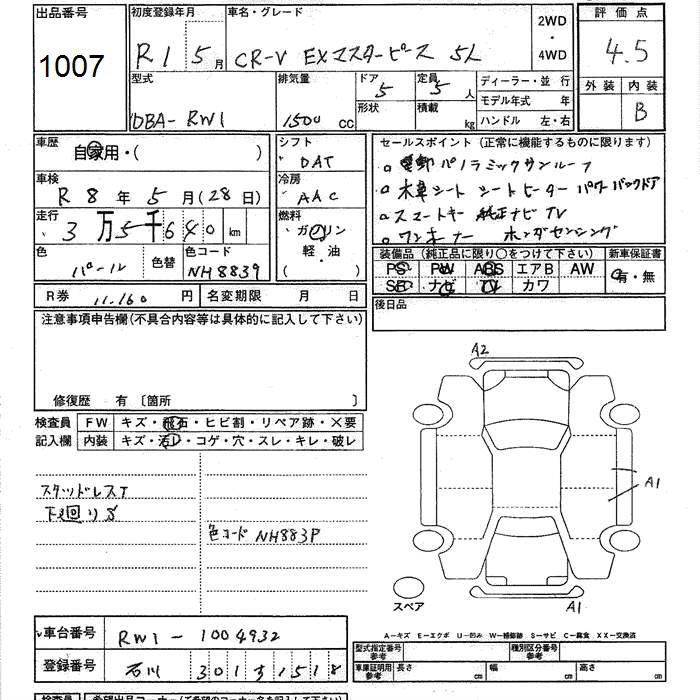 出品番号
1007
初度登録年月
R1 5月
車名・グレード
CR-V EXマスターピース 5L
2WD
・
4WD
評価点
4.5
外装 内装
B
型式
DBA-RW1
排気量
1500 cc
ドア
5
形状
定員
5人
積載
kg
ディーラー・並行
モデル年式 年
ハンドル 左・右
車歴
自家用・( )
車検
R8年5月(28日)
走行
3万5千640km
色
パール
色替
色コード
NH883P
シフト
DAT
冷房
AAC
燃料
ガソリン
軽・油
セールスポイント (正常に機能するものに限ります)
パノラミックサンルーフ
シート シートヒーター パワーバックドア
スマートキー 純正ナビ TV
ワンオーナー ホンダセンシング
装備品 (純正品に限り○をつけて下さい)
PS PW ABS エアB AW
SR ナビ TV カワ
新車保証書
有・無
R券 11,160円
名変期限 月 日
後日品
注意事項申告欄(不具合内容等は具体的に記入して下さい)
修復歴 有 〔箇所 〕
検査員
記入欄
FW キズ・飛石・ヒビ割・リペア跡・×要
内装 キズ・汚レ・コゲ・穴・スレ・キレ・破レ
スタッドレスT
下廻りS
色コード NH883P
A2
A1
A1
スペア
A-キズ E-エクボ U-凹み W-補修跡 S-サビ C-腐食 XX-交換済
車台番号
RW1-1004932
登録番号
石川 301す1518
型式指定番号
参考
種別区分番号
参考
車庫証明用
参考
長さ cm 幅 cm 高さ cm
検査員
希望出品コーナー(ご希望のコーナー名を記入して下さい)